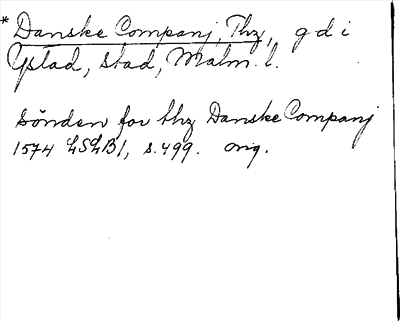 *Danske Companj, Thz, g d i
Ystad, stad, Malm. l.
Sönden for thz Danske Companj
1574 LSLB1, s. 499. orig.